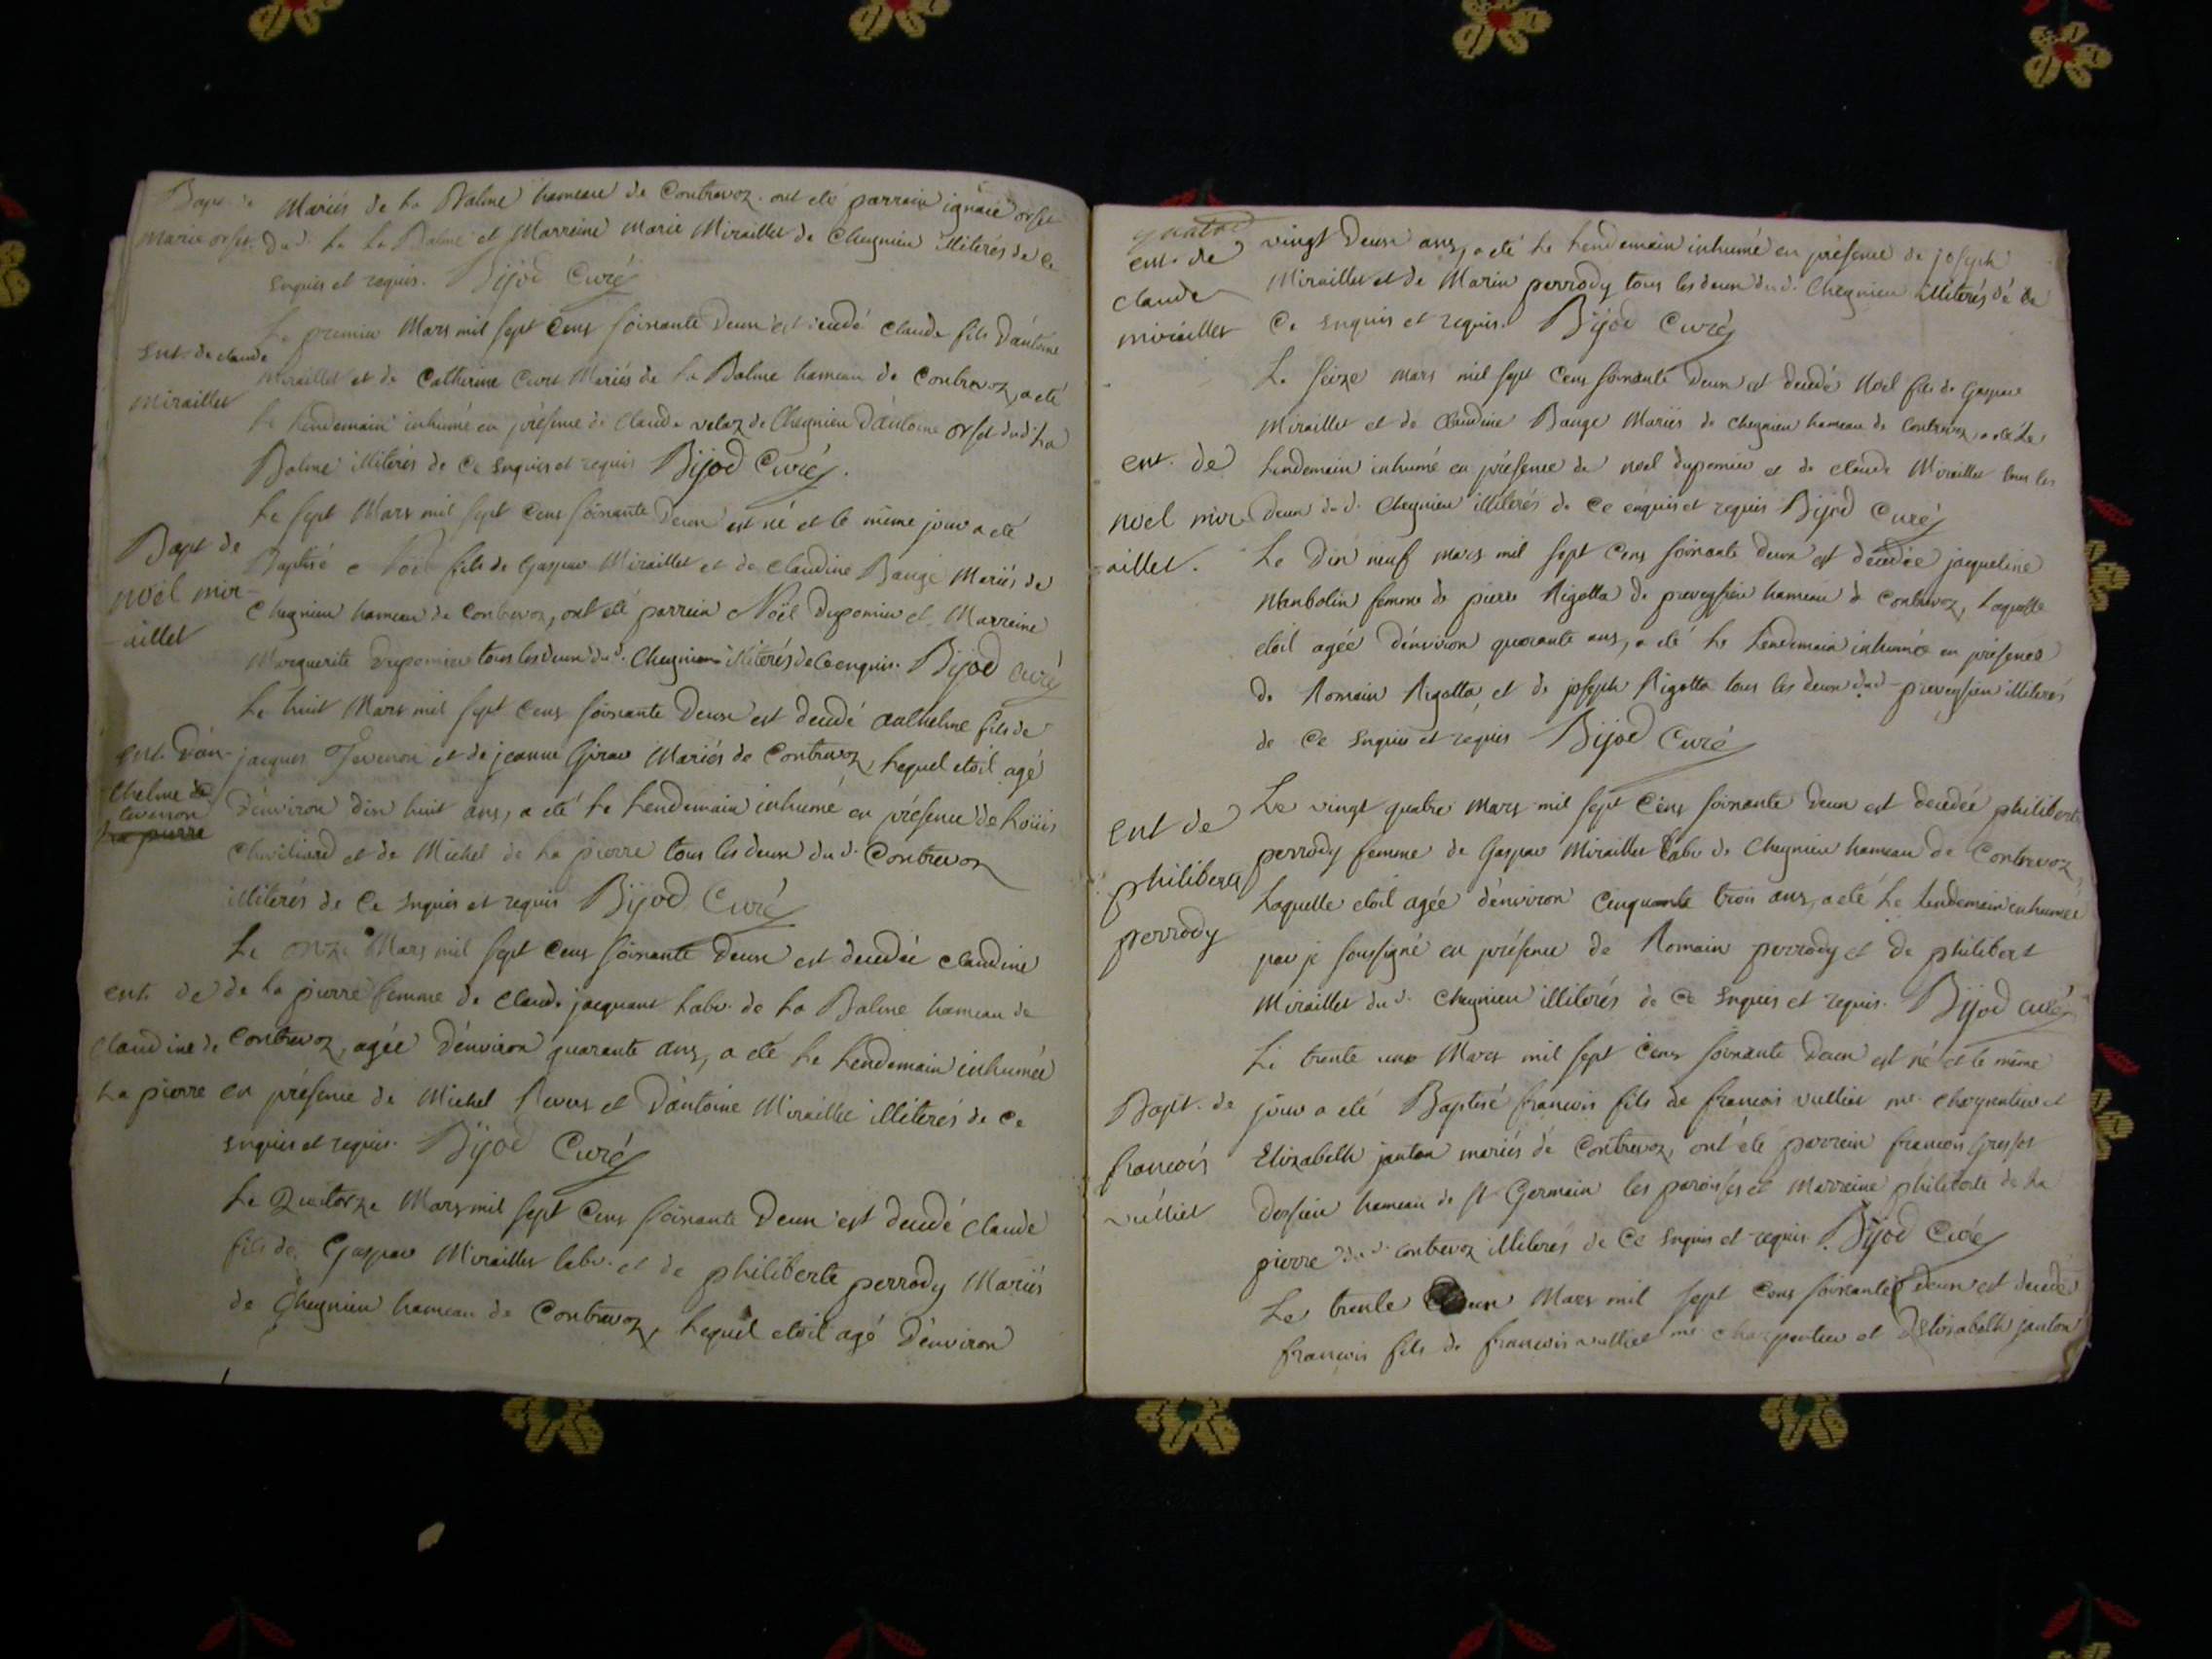 Bapt. de
Marie orset.
Mariés de La Balme hameau de Contrevoz. ont eté parrain ignace orset
Dud. La La Balme et Marreine Marie Miraillet de Chegnieu illiterés de ce
Enquis et requis. Bijod Curé
Ent. de claude
Miraillet
Le premier Mars mil sept Cens soixante Deux est decedé Claude fils D'antoine
Miraillet et de Catherine Curt Mariés de La Balme hameau de Contrevoz, a eté
Le Lendemain inhumé en présence de Claude velaz de Chegnieu D'antoine orset dud. La
Balme illiterés de Ce Enquis et requis Bijod Curé.
Bapt de
noël mir-
-aillet
Le sept Mars mil sept Cens soixante Deux est né et le même jour a eté
Baptisé Noël fils de Gaspar Miraillet et de Claudine Bange Mariés de
Chegnieu hameau de Contrevoz, ont eté parrein Noël Dupomier et Marreine
Marguerite Dupomier tous les deux dud. Chegnieu illiterés de Ce enquis. Bijod Curé
ent. D'an-
thelme de
tevenon
La pierre
Le huit Mars mil sept Cens soixante Deux est decedé anthelme fils de
jacques Tevenon et de jeanne Girar Mariés de Contrevoz, Lequel etoit agé
D'environ Dix huit ans, a eté Le Lendemain inhumé en présence de Loüis
Chevilliard et de Michel de La pierre tous les deux du d. Contrevoz
illiterés de Ce Enquis et requis Bijod Curé
ent. de
Claudine de
La pierre
Le onze Mars mil sept Cens soixante Deux est decedée Claudine
de La pierre femme de Claude jacquant Labr. de La Balme hameau de
Contrevoz, agée D'environ quarante ans, a eté Le Lendemain inhumée
en présence de Michel Revus et D'antoine Miraillet illiterés de Ce
Enquis et requis. Bijod Curé
Le Quatorze Mars mil sept Cens soixante Deux est decedé Claude
fils de Gaspar Miraillet labr. et de philiberte perrody Mariés
de Chegnieu hameau de Contrevoz, Lequel etoit agé D'environ
ent. de
claude
miraillet
vingt Deux ans, a eté Le Lendemain inhumé en présence de joseph
Miraillet et de Marin perrody tous les deux du d. Chegnieu illiterés de
Ce Enquis et requis. Bijod Curé
ent. de
noël mir-
-aillet.
Le seize Mars mil sept Cens soixante Deux est decedé Noël fils de Gaspar
Miraillet et de Claudine Bange Mariés de Chegnieu hameau de Contrevoz, a eté Le
Lendemain inhumé en présence de noël dupomier et de claude Miraillet tous les
Deux du d. Chegnieu illiterés de Ce enquis et requis Bijod Curé
Le Dix neuf Mars mil sept Cens soixante Deux est decedée jacqueline
femme de pierre Rigotta de preveyssieu hameau de Contrevoz, Laquelle
etoit agée D'environ quarante ans, a eté Le Lendemain inhumée en présence
De Romain Rigotta, et de joseph Rigotta tous les deux dud. preveyssieu illiterés
de Ce Enquis et requis Bijod Curé
ent de
philiberte
perrody
Le vingt quatre Mars mil sept Cens soixante Deux est decedée philiberte
perrody femme de Gaspar Miraillet Labr de Chegnieu hameau de Contrevoz,
Laquelle etoit agée D'environ Cinquante trois ans, a eté Le Lendemain inhumée
par je soussigné en présence de Romain perrody et de philibert
Miraillet du d. Chegnieu illiterés de Ce Enquis et requis. Bijod Curé
Bapt. de
francois
vulliet
Le trente un Mars mil sept Cens soixante Deux est né et le même
jour a eté Baptisé francois fils de francois vulliet me. charpentier et
Elizabeth janton mariés de Contrevoz, ont eté parrein francois
Dessieu hameau de St Germain les paroisses et Marreine philiberte de La
pierre du d. Contrevoz illiterés de Ce Enquis et requis. Bijod Curé
Le trente un Mars mil sept Cens soixante Deux est decedé
francois fils de francois vulliet me. charpentier et D'Elizabeth janton